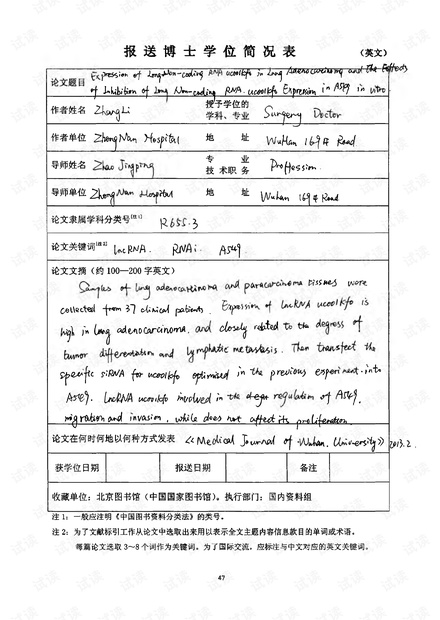 报送博士学位简况表 （英文）
论文题目 Expression of Long Non-coding RNA uc001kfo in Lung Adenocarcinoma and The Effects
of Inhibition of Long Non-coding RNA uc001kfo Expression in A549 in vitro.
作者姓名 Zhang Li 授予学位的学科、专业 Surgery Doctor
作者单位 ZhongNan Hospital 地址 WuHan 169# Road
导师姓名 Zhao Jingping 专业技术职务 Proffession
导师单位 ZhongNan Hospital 地址 Wuhan 169# Road
论文隶属学科分类号[注1] R655.3
论文关键词[注2] lncRNA. RNAi. A549.
论文文摘（约100—200字英文）
Samples of lung adenocarcinoma and paracarcinoma tissues were
collected from 37 clinical patients. Expression of lncRNA uc001kfo is
high in lung adenocarcinoma, and closely related to the degress of
tumor differentation and lymphatic metastasis. Then transfect the
specific siRNA for uc001kfo optimised in the previous experiment into
A549. LncRNA uc001kfo involved in the regulation of A549,
migration and invasion, while does not affect its proliferation.
论文在何时何地以何种方式发表 《Medical Journal of Wuhan University》 2013.2.
获学位日期 报送日期 备注
收藏单位：北京图书馆（中国国家图书馆）。执行部门：国内资料组
注1：一般应注明《中国图书资料分类法》的类号。
注2：为了文献标引工作从论文中选取出来用以表示全文主题内容信息款目的单词或术语。
每篇论文选取3～8个词作为关键词。为了国际交流，应标注与中文对应的英文关键词。
47